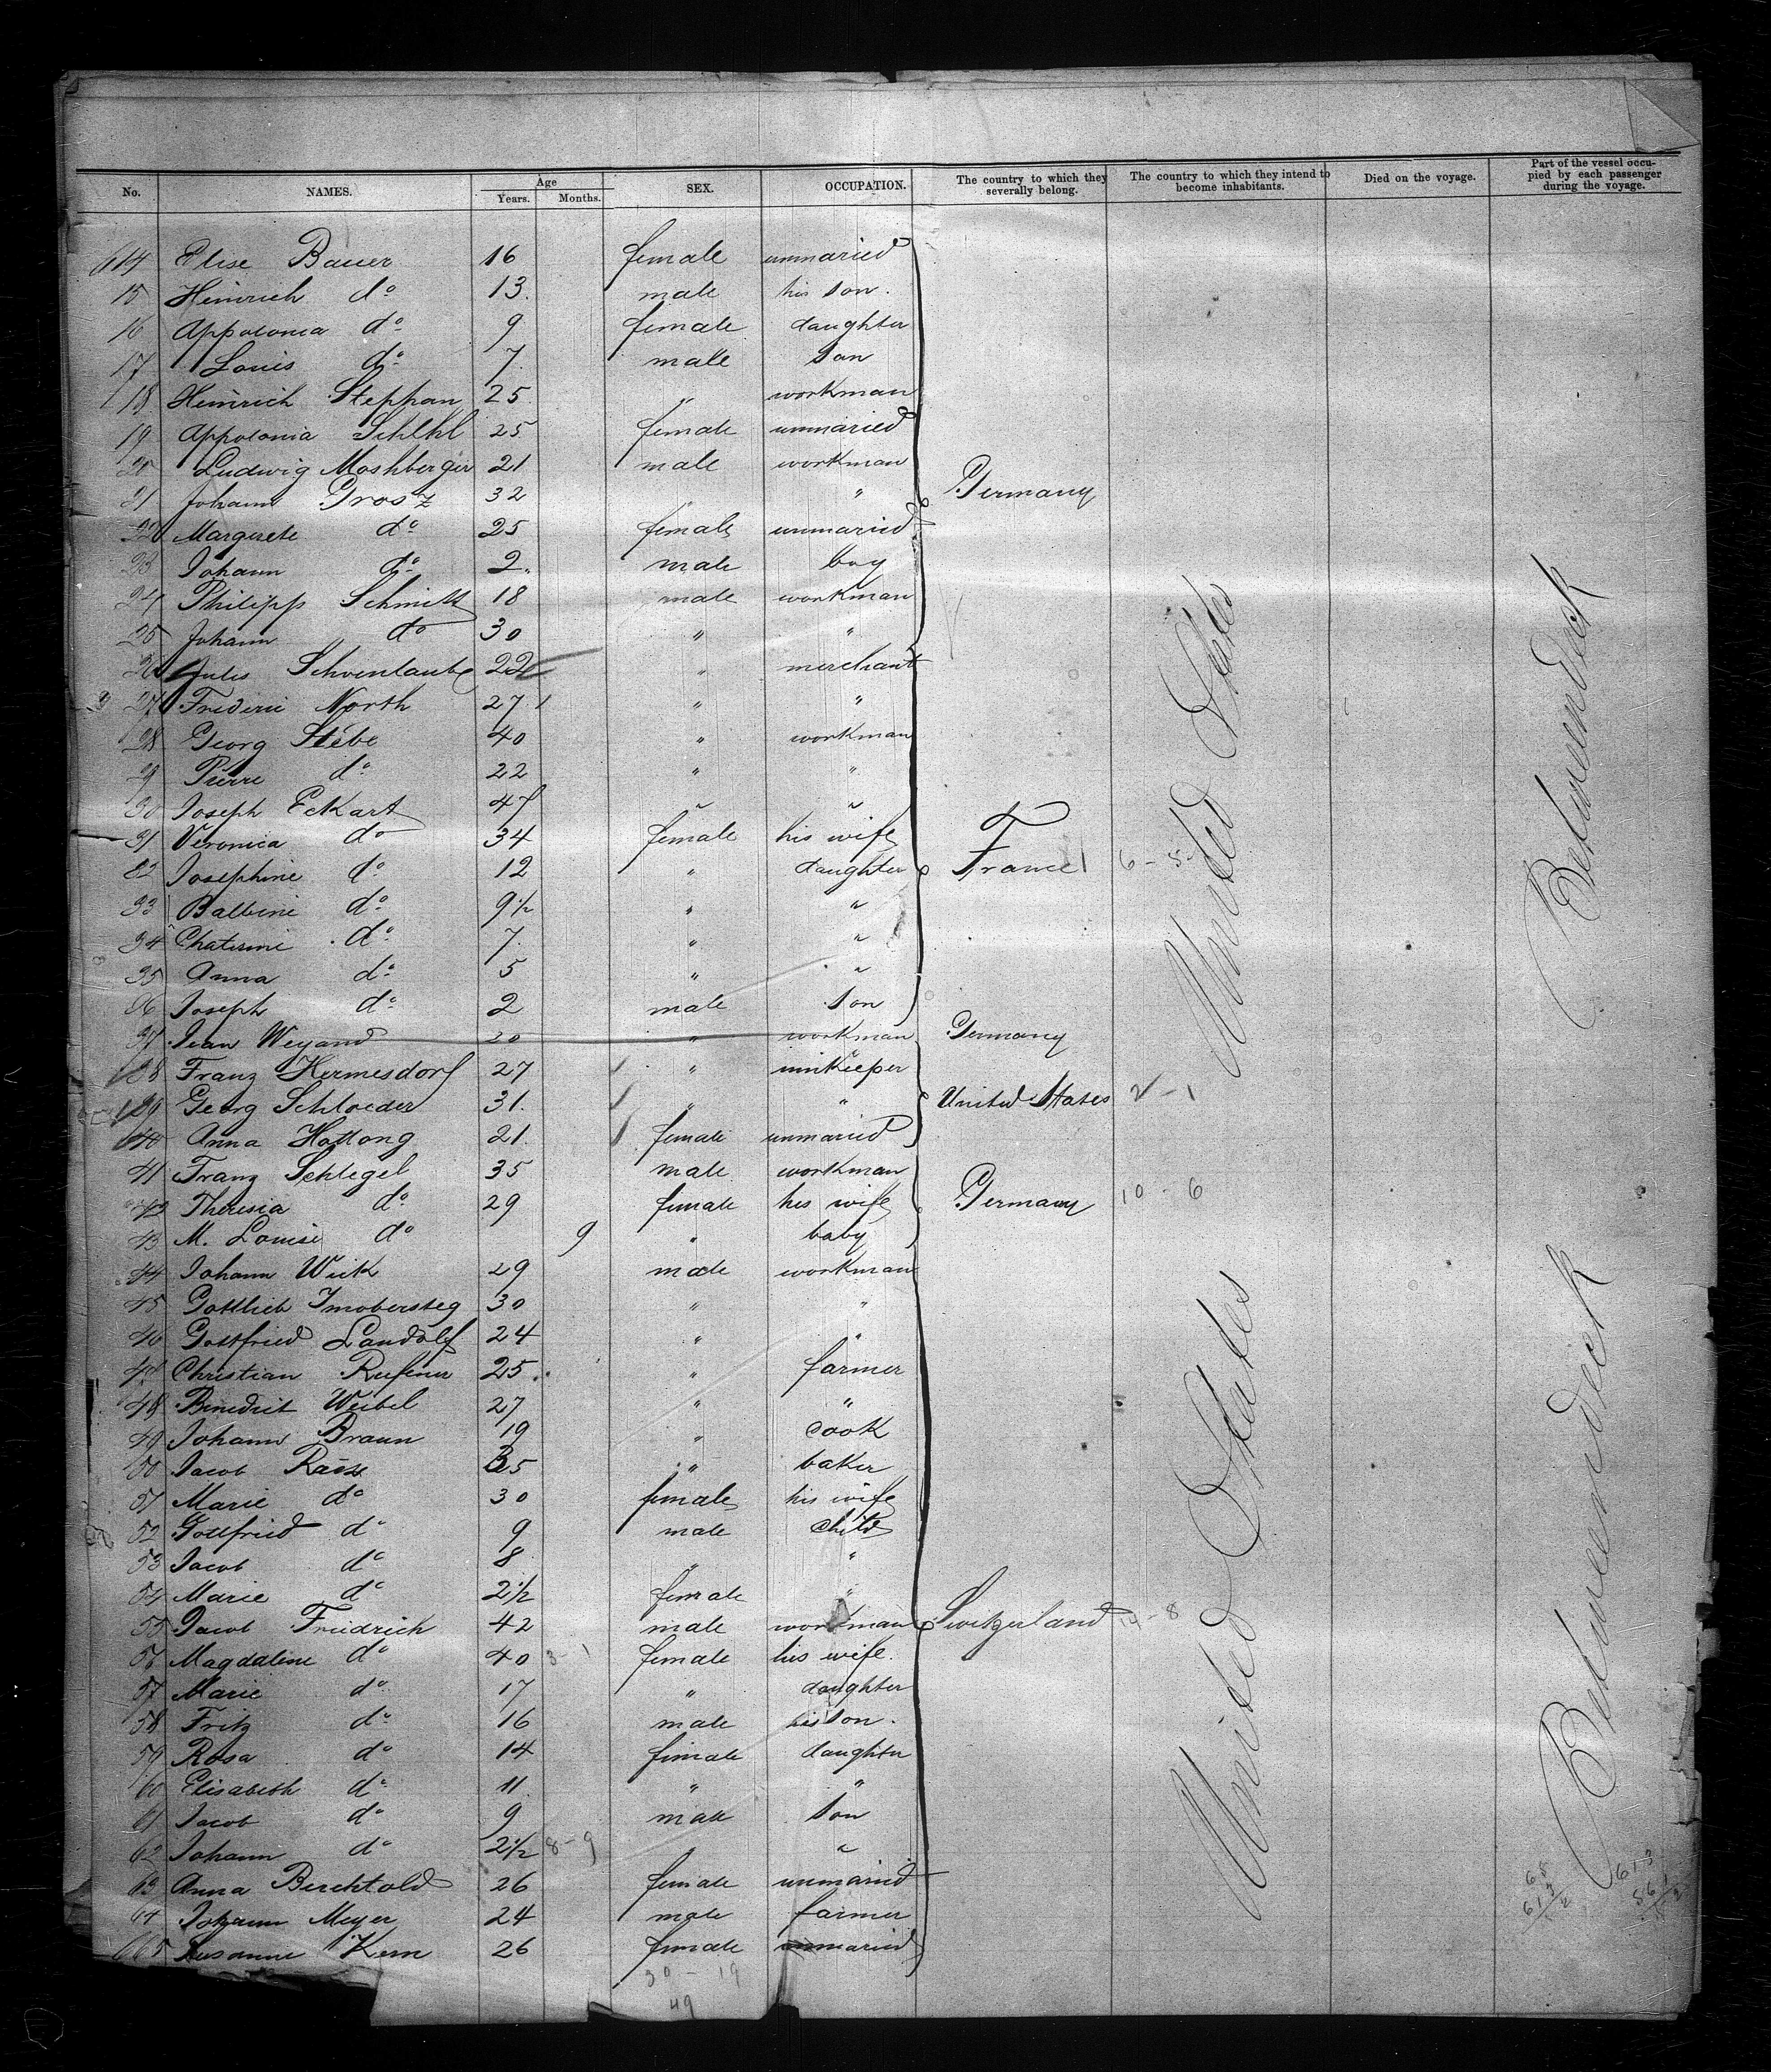 No. NAMES. Age Years. Months. SEX. OCCUPATION. The country to which they severally belong. The country to which they intend to become inhabitants. Died on the voyage. Part of the vessel occupied by each passenger during the voyage.
614 Elise Bauer 16 female unmaried
15 Heinrich do 13. male his son.
16 Appolonia do 9 female daughter
17 Louis do 7. male son
18 Heinrich Stephan 25 " workman
19 Appolonia Schlhl 25 female unmaried
20 Ludwig Moshberger 21 male workman
21 Johann Grosz 32 " " Germany
22 Margerete do 25 female unmaried
23 Johann do 2. male boy
24 Philipp Schmitt 18 male workman
25 Johann do 30 " "
26 Jules Schoenlaube 22 " merchant
27 Frederic North 27 " "
28 Georg Stebe 40 " workman
29 Pierre do 22 " "
30 Joseph Eckart 47 " "
31 Veronica do 34 female his wife
32 Josephine do 12 " daughter France 6-5
33 Balbine do 9½ " "
34 Chaterine do 7. " "
35 Anna do 5 " "
36 Joseph do 2 male son
37 Jean Weyand 20 " workman Germany
38 Franz Hermesdorf 27 " innkeeper
39 Georg Schloeder 31. " " United States 2-1
40 Anna Hottong 21. female unmaried
41 Franz Schlegel 35 male workman
42 Theresia do 29 female his wife Germany 10-6
43 M. Louise do 9 " baby
44 Johann Weik 29 male workman
45 Gottlieb Imobersteg 30 " "
46 Gottfried Landolf 24 " "
47 Christian Rufener 25. " farmer
48 Benedict Weibel 27 " "
49 Johann Braun 19 " cook
50 Jacob Raöz 35 " baker
51 Marie do 30 female his wife
52 Gottfried do 9 male child
53 Jacob do 8 " "
54 Marie do 2½ female "
55 Jacob Friedrich 42 male workman Switzerland 14-8
56 Magdalene do 40 3-1 female his wife.
57 Marie do 17 " daughter
58 Fritz do 16 male his son.
59 Rosa do 14 female daughter
60 Elisabeth do 11. " "
61 Jacob do 9 male son
62 Johann do 2½ 8-9 " "
63 Anna Berchtold 26 female unmaried
64 Johann Meyer 24 male farmer
665 Susanne Kern 26 female unmaried
30 - 19
49
United States
United States
Betweendeck
Betweendeck